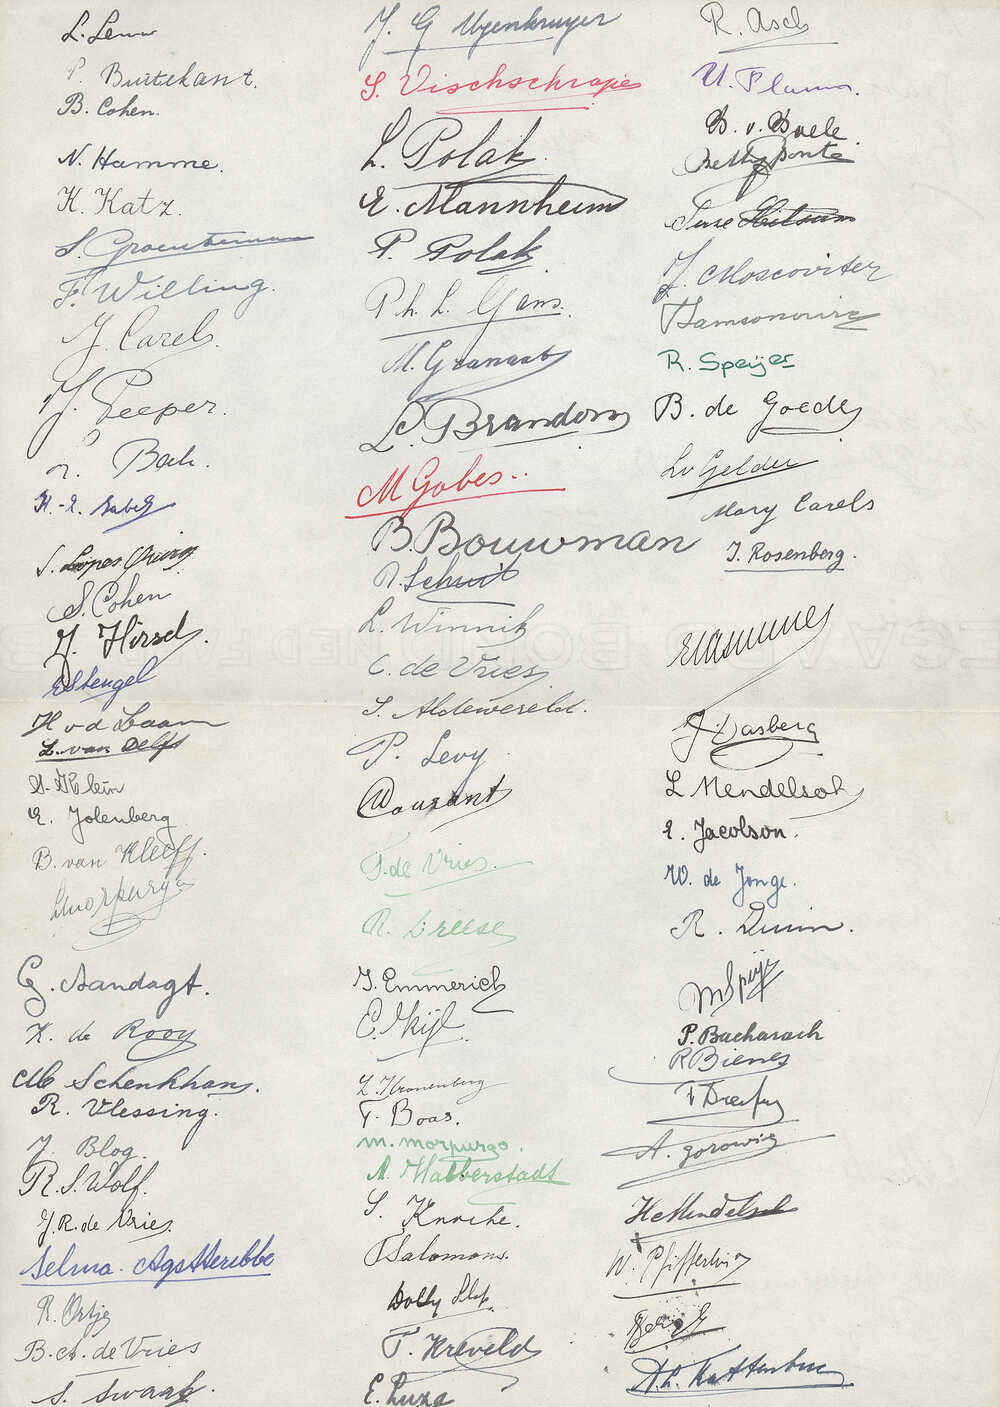 L. Leuw
P. Buitekant.
B. Cohen.
N. Hamme.
K. Katz.
S. Groenteman
F. Willing.
J. Carels.
J. Peeper.
Bak.
S. Lopes
S. Cohen
J. Hirsch.
E Stengel
H v d Laan
L. van Delft
S. Klein
E. Jolenberg
B. van Kleeff.
L morpurgo
G. Aandagt.
K. de Rooy
M. Schenkhan.
R. Vlessing.
J. Blog.
R. S. Wolf.
J. R. de Vries.
Selma Agsteribbe
R. Ortje
B. A. de Vries
S. Swaab.
J. G Uyenkruyer
S. Vischschraper
L. Polak.
E. Mannheim
P. Polak
Ph. L. Gans.
M. Granaat
L. Brandon
M Gobes..
B. Bouwman
Schuit
L. Winnik
C. de Vries
S. Aldewereld.
P. Levy
Courant
F. de Vries.
R. Creese
J. Emmerich
E.
L. Kronenberg
F. Boas.
M. morpurgo.
A. Halberstadt
S. Knoche.
Salomons.
Dolly Slap.
F. Kreveld
E.
R. Asch
B. v. Boele
Betty Bonte
J. Moscoviter
R. Speijer
B. de Goede
L v Gelder
Mary Carels
J. Rosenberg.
J. Dasberg
L Mendelsoh
E. Jacobson.
W. de Jonge.
R.
M Speijer
P. Bacharach
R Bienes
A. gorowitz
H. Mendelsohn
W. Pfifferling